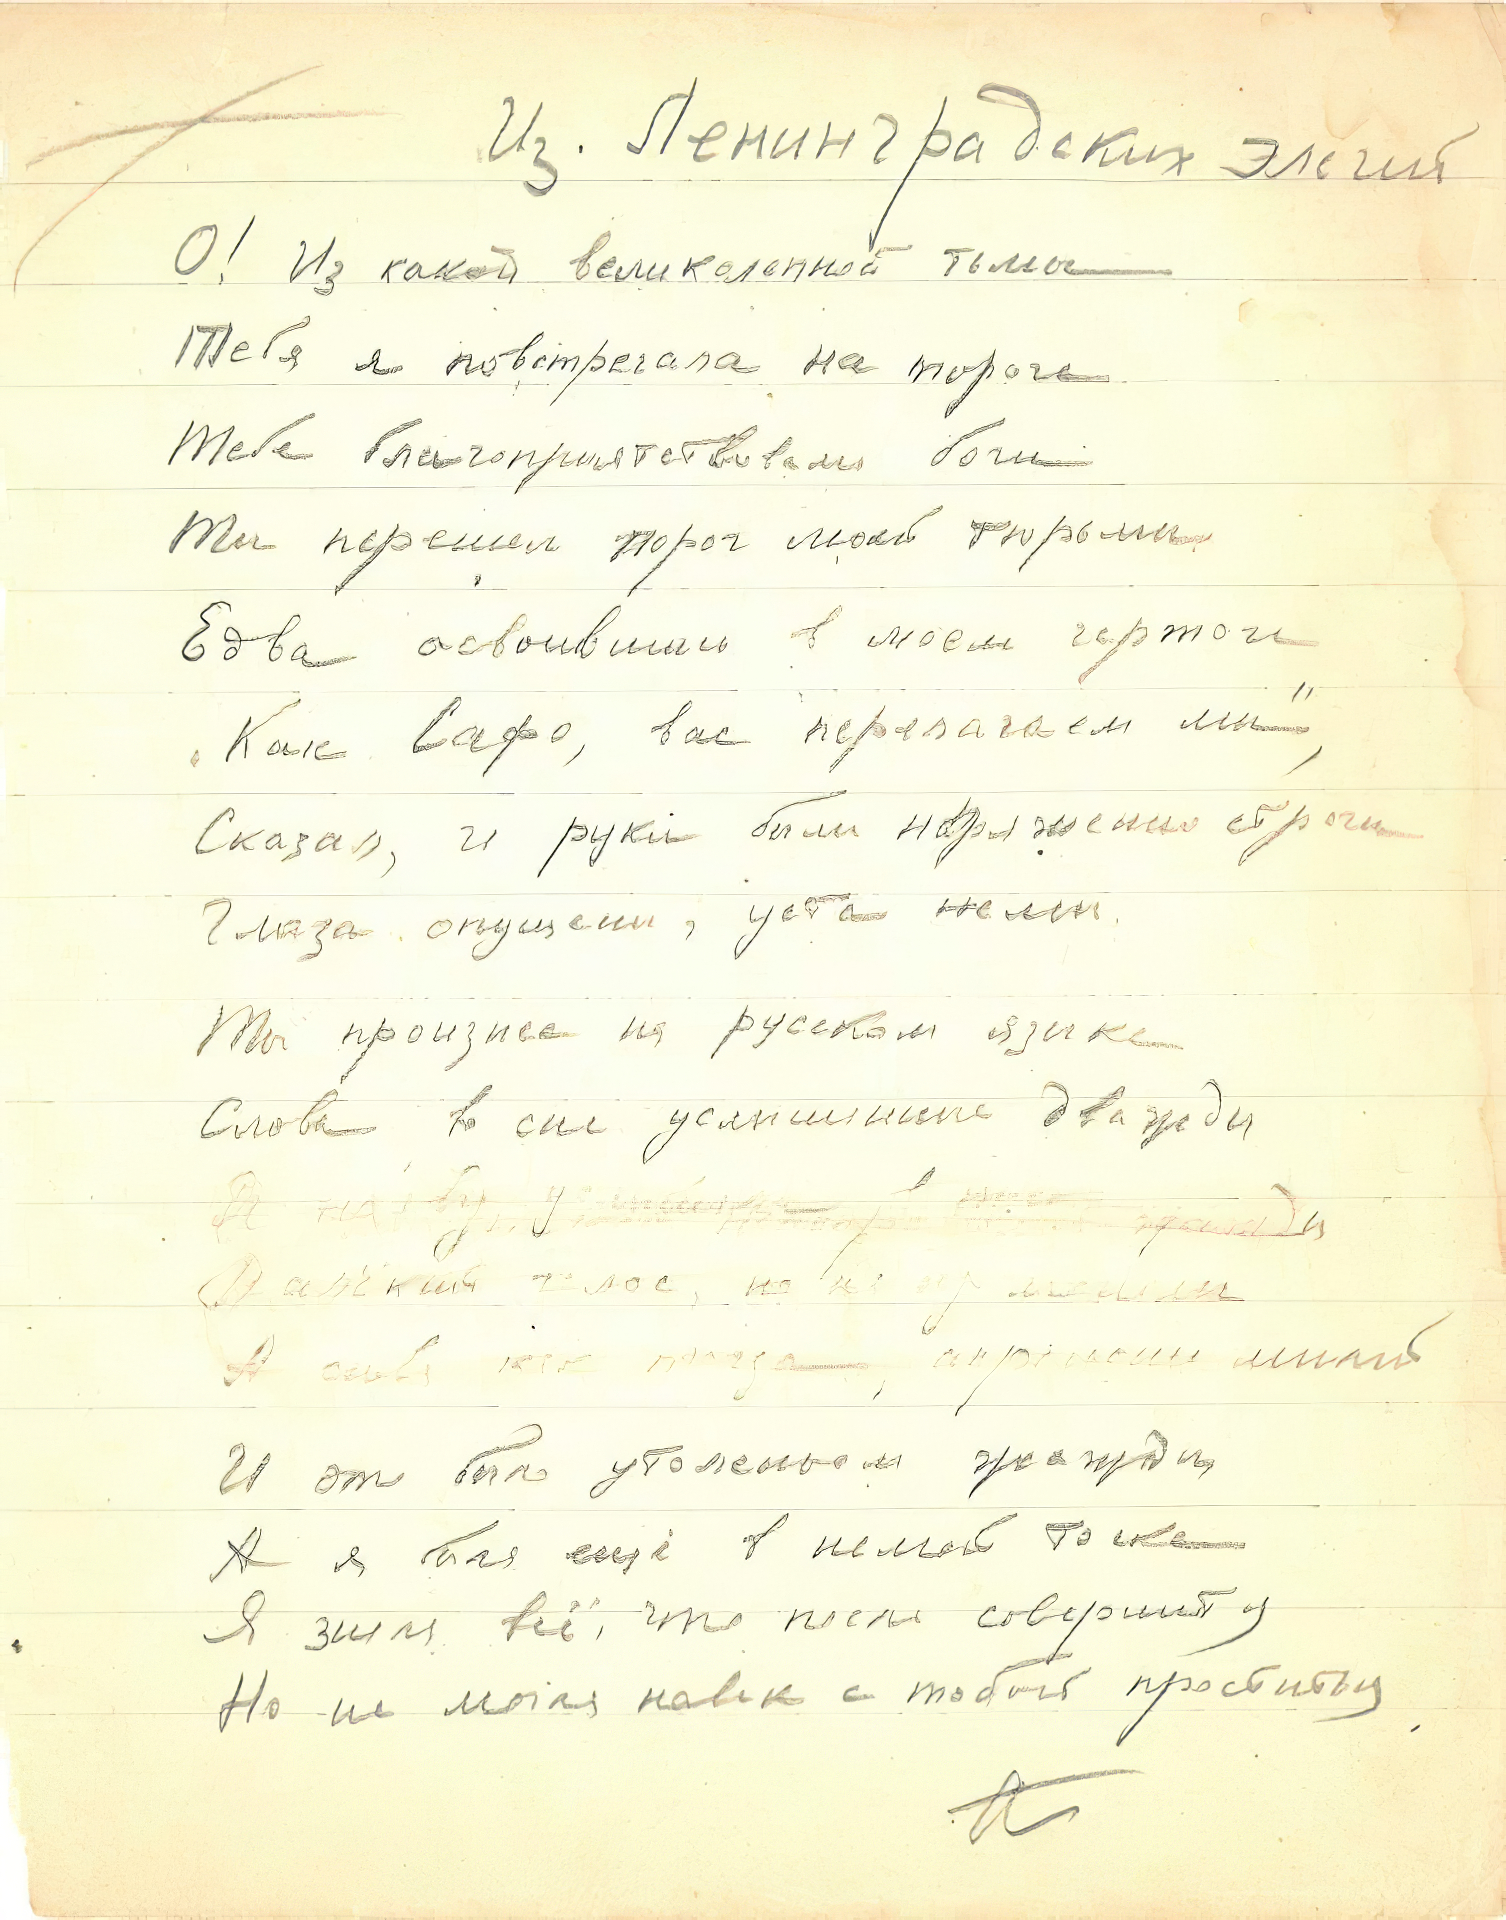 Из Ленинградских элегий
О! Из какой великолепной тьмы
Тебя я повстречала на пороге
Тебе благоприятствовали боги
Ты перешел порог моей тюрьмы
Едва освоившись в моем чертоге
"Как Сафо, вас перелагаем мы",
Сказал, и руки были напряженно строги
Глаза опущены, уста немы.
Ты произнес на русском языке
Слова во сне услышанные дважды
голос, но не
А себя как милый
И это было утоленьем жажды
А я была ещё в немой тоске
Я знала всё, что после совершится
Но не могла навек с тобой проститься
А